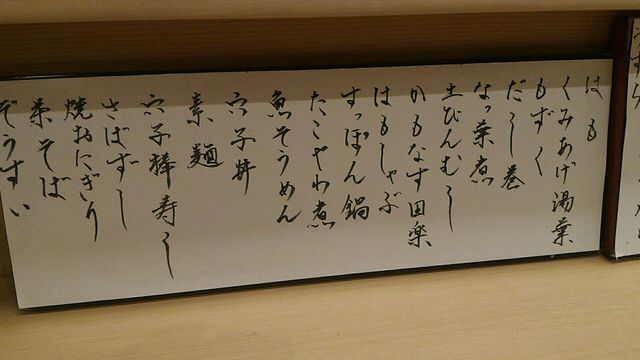 はも
くみあげ湯葉
もずく
だし巻
なっ葉煮
土びんむし
かもなす田楽
はもしゃぶ
すっぽん鍋
たこやわ煮
魚そうめん
穴子丼
素麺
穴子棒寿し
さばずし
焼おにぎり
茶そば
ぞうすい